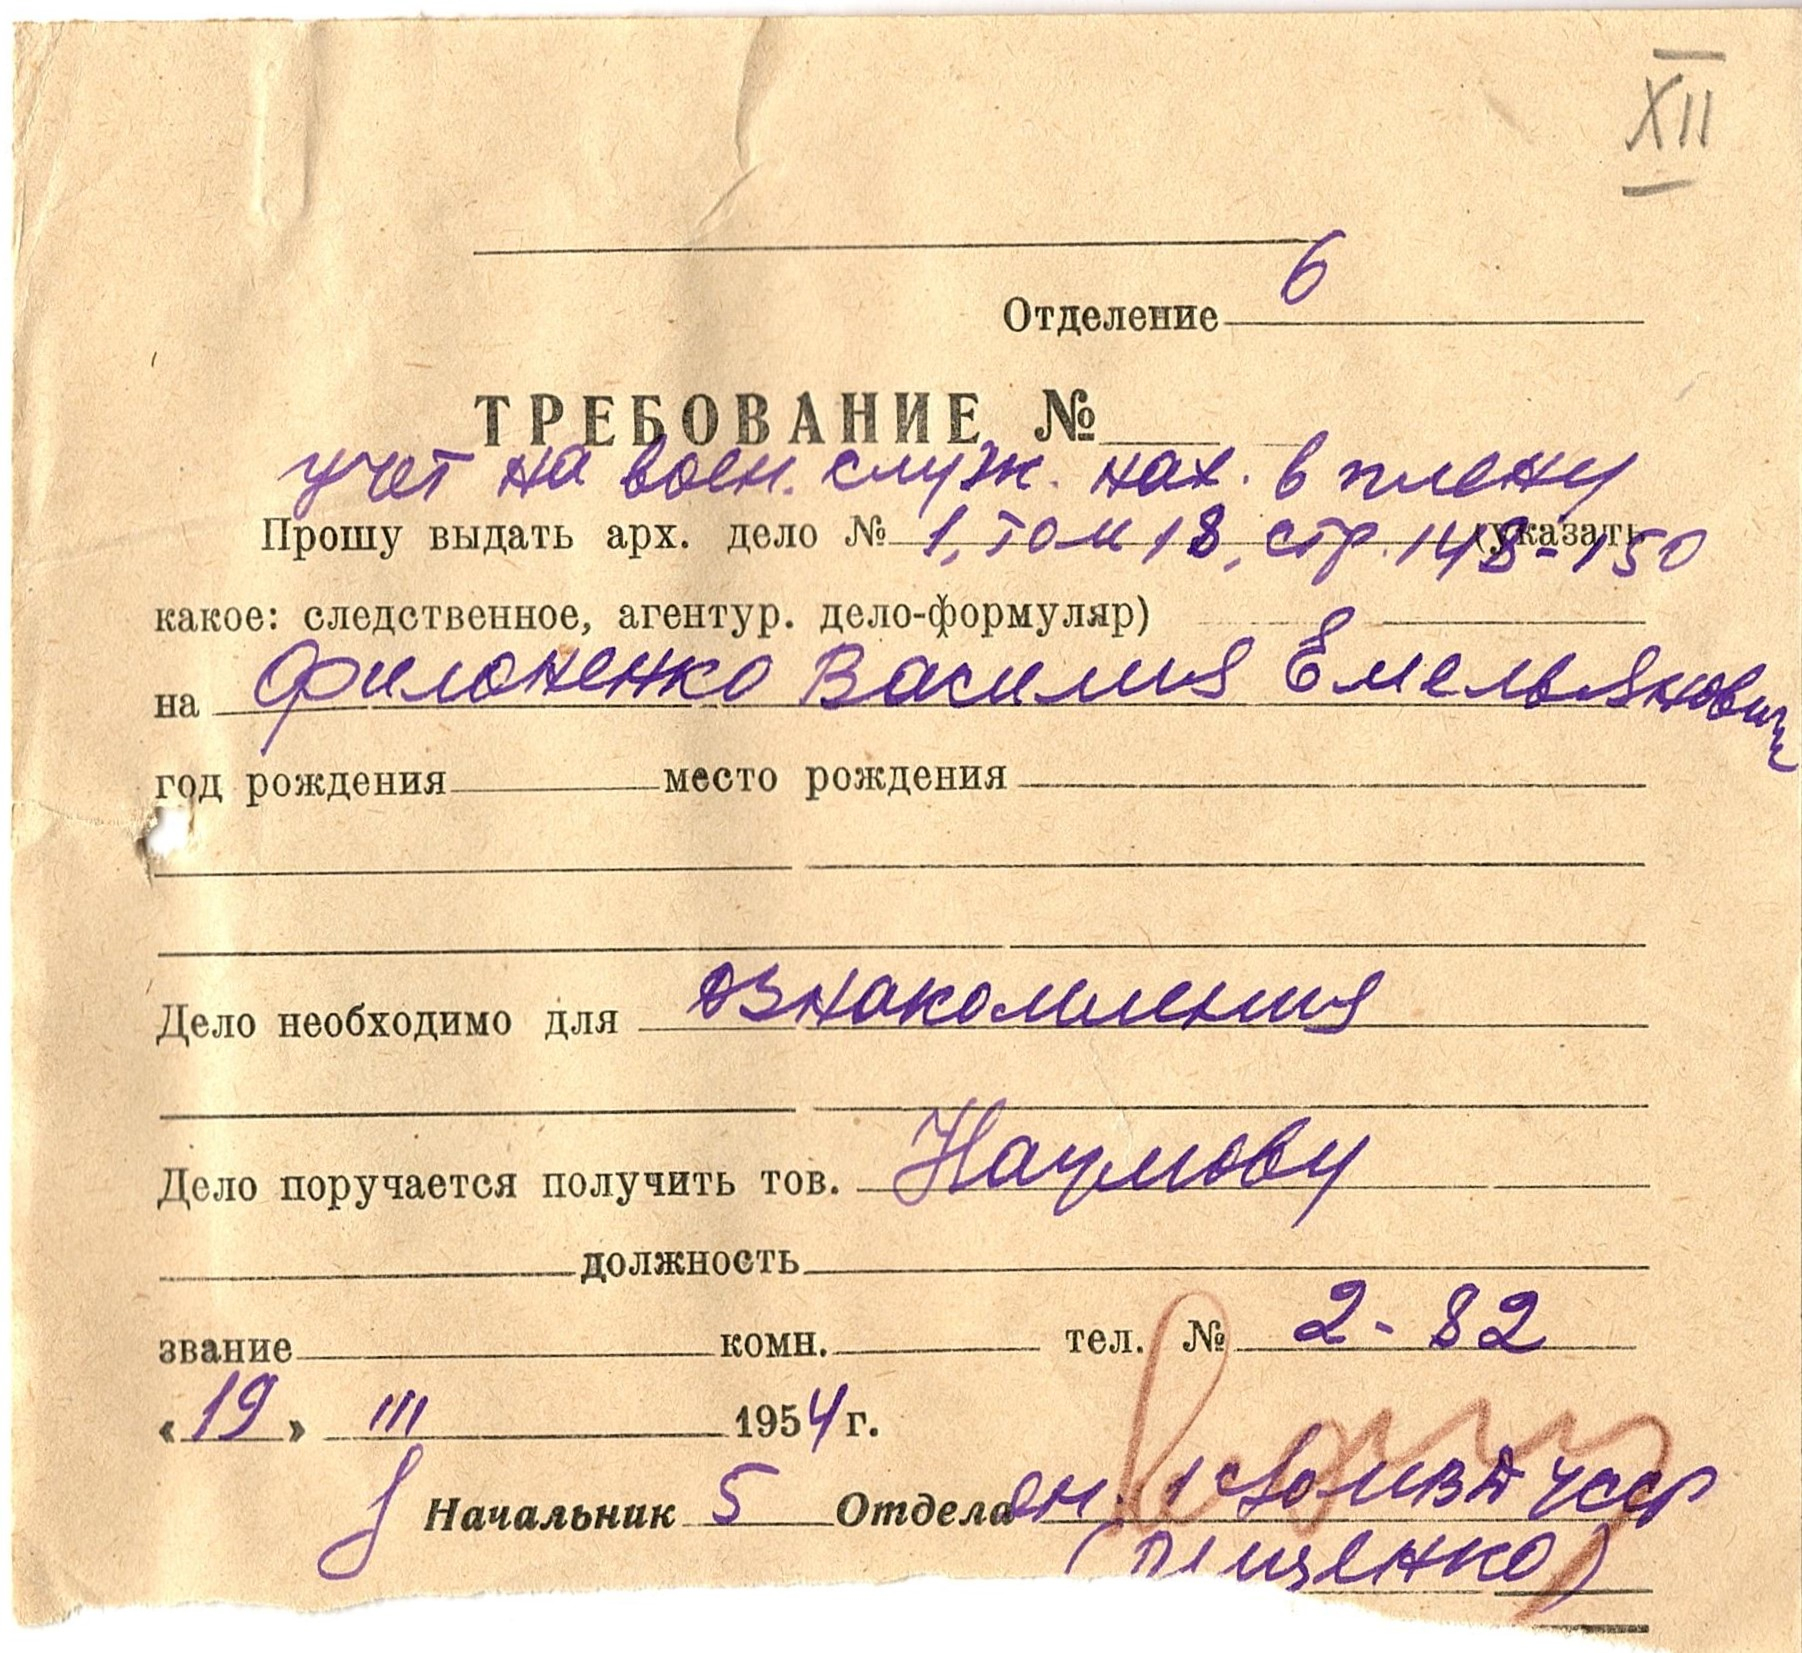 XII
Отделение 6
ТРЕБОВАНИЕ №
учет на воен. служ. нах. в плену
Прошу выдать арх. дело № 1, том 18, стр. 148-150 (указать
какое: следственное, агентур. дело-формуляр)
на Филоненко Василия Емельянович
год рождения место рождения
Дело необходимо для ознакомления
Дело поручается получить тов. Наумову
должность
звание комн. тел. № 2-82
«19» III 1954 г.
Начальник 5 Отдела МВД УССР
(Пищенко)